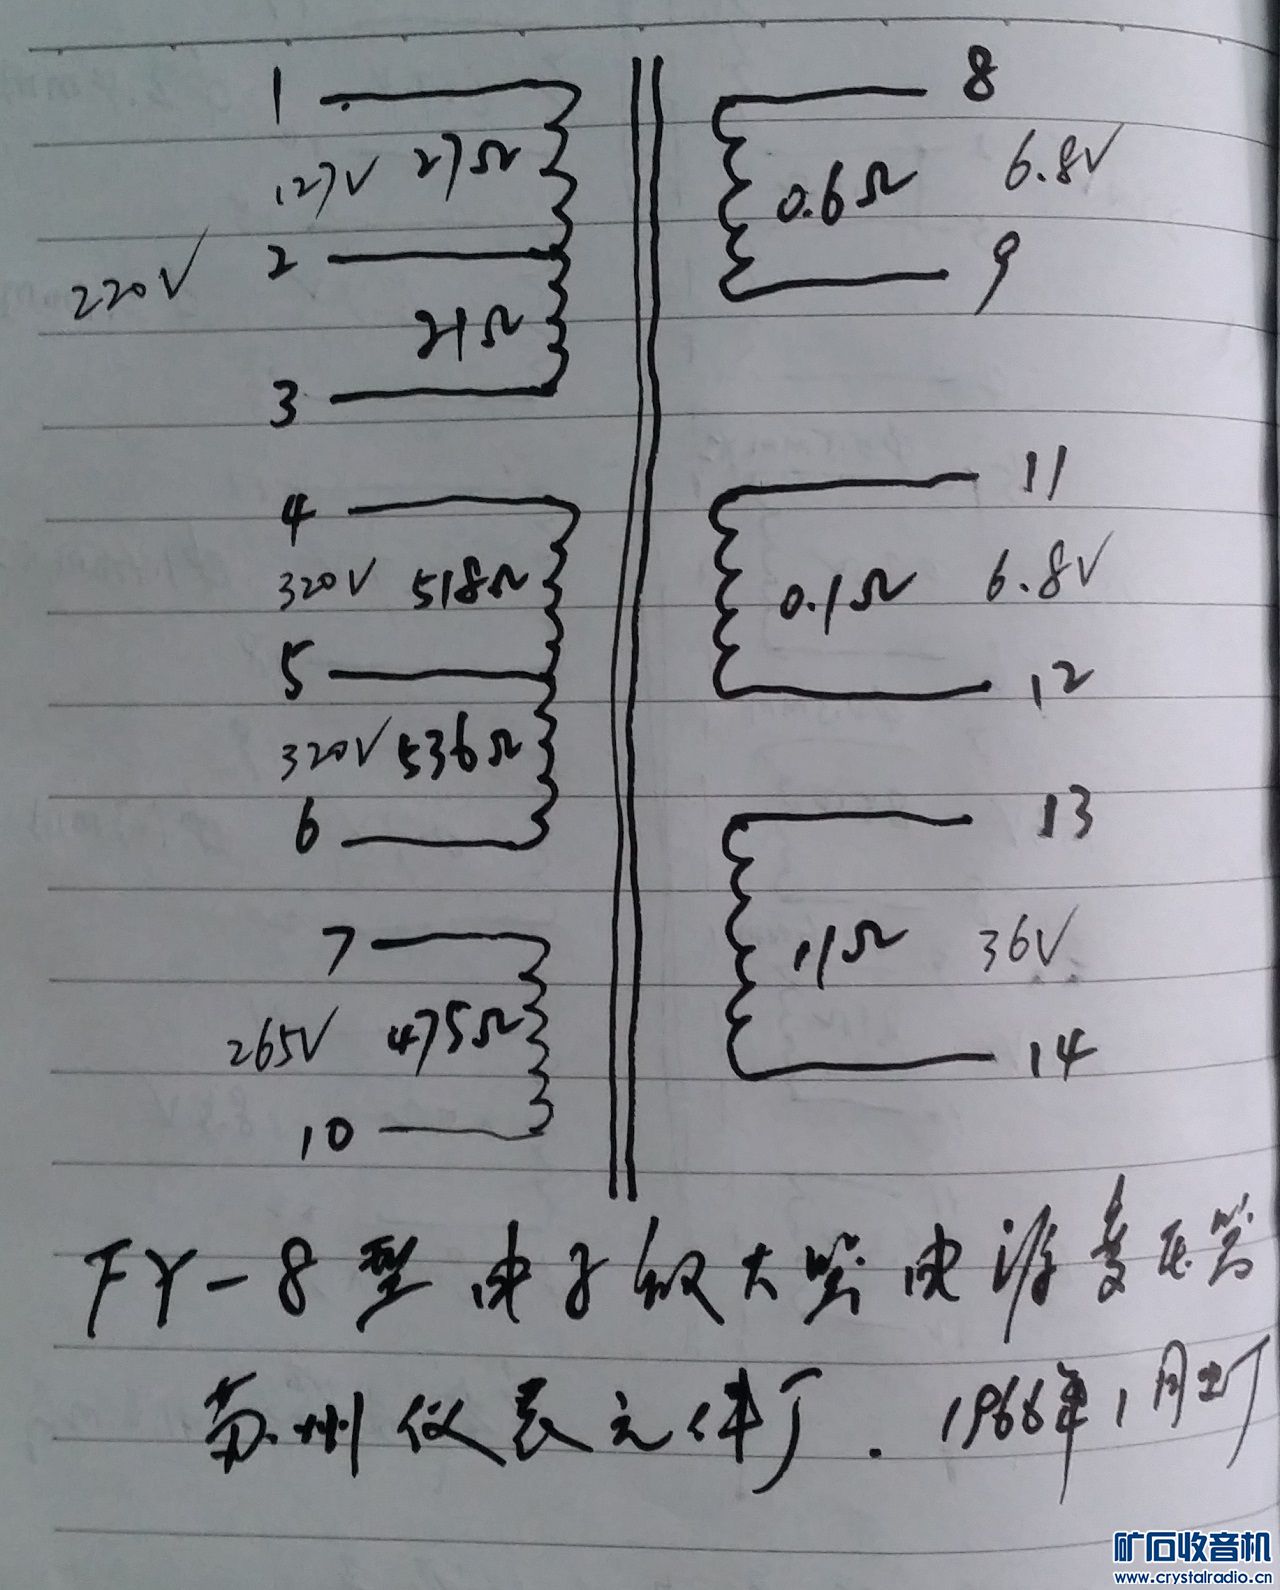 1
127V 27Ω
2
220V
21Ω
3
4
320V 518Ω
5
320V 536Ω
6
7
265V 475Ω
10
8
0.6Ω 6.8V
9
11
0.1Ω 6.8V
12
13
11Ω 36V
14
FY-8型电子放大器电源变压器
苏州仪表元件厂. 1966年1月出厂
矿石收音机
www.crystalradio.cn